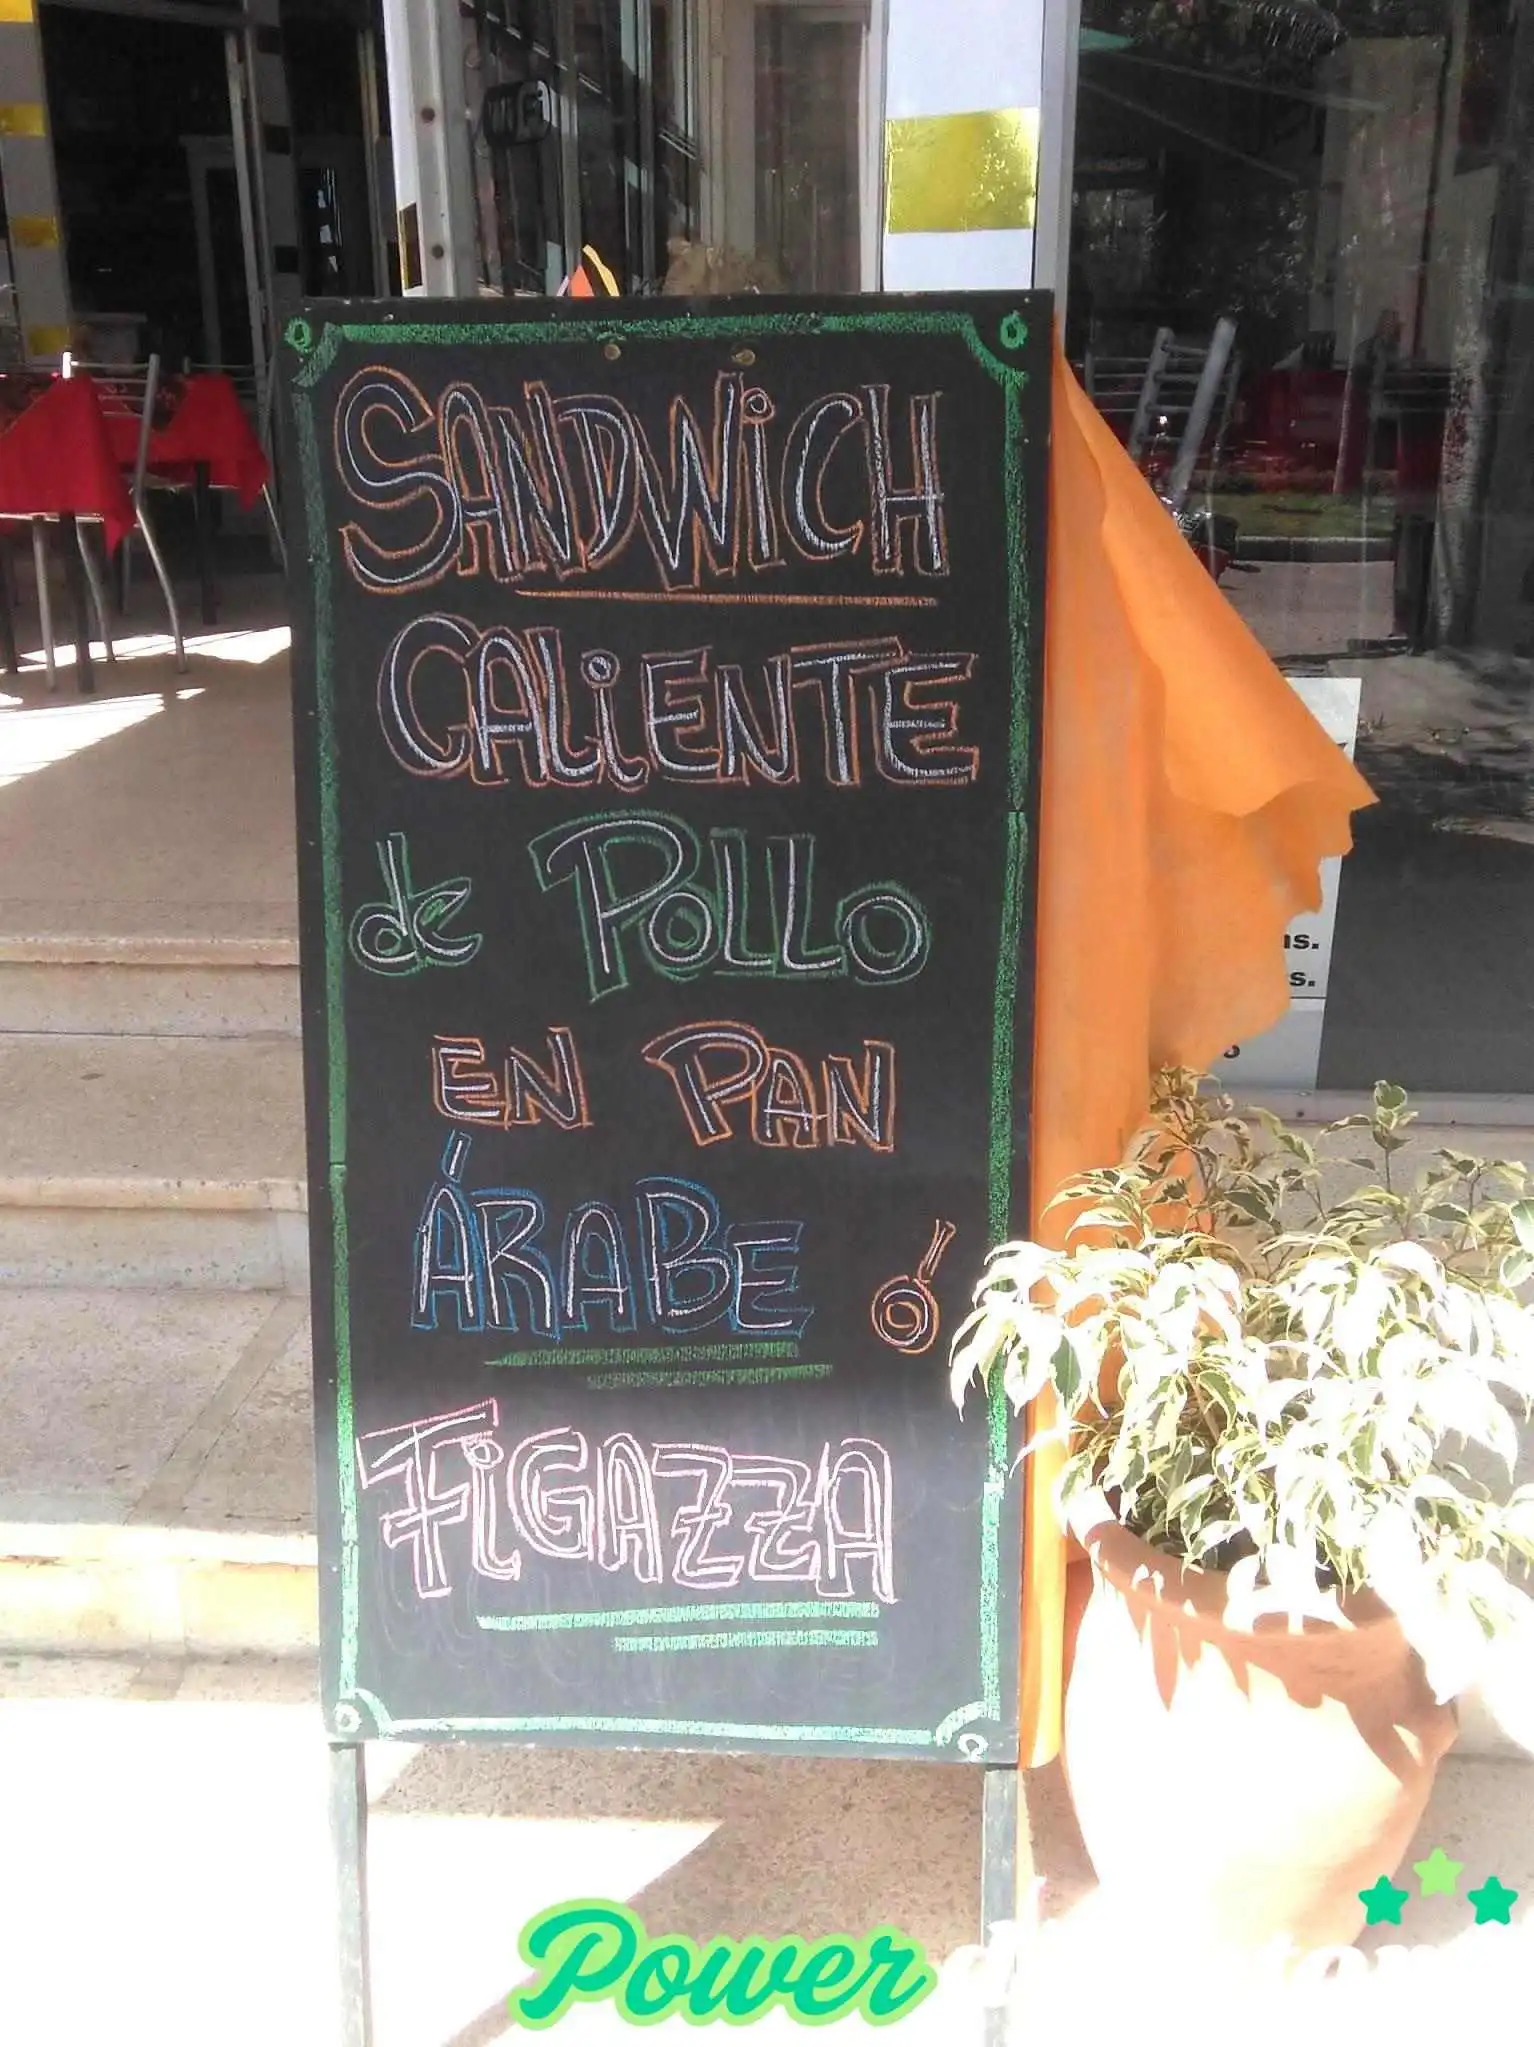 SANDWiCH
CALiENTE
de POLLO
EN PAN
ÁRABE ó
FiGAZZA
ns.
s.
Power